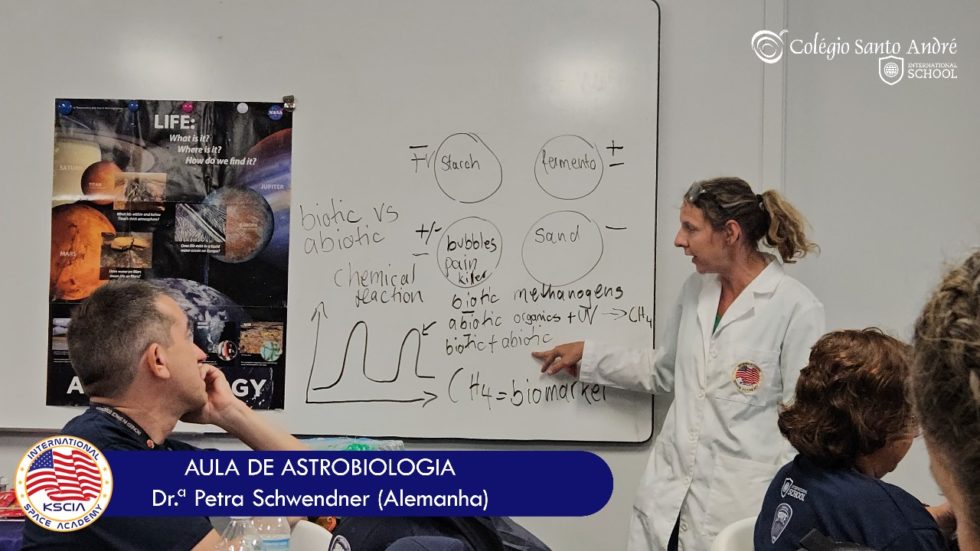 Colégio Santo André
INTERNATIONAL
SCHOOL
NASA
LIFE:
What is it?
Where is it?
How do we find it?
SATURN
TITAN
JUPITER
EUROPA
MARS
biotic vs
abiotic
chemical
reaction
Starch
fermento
+
−
+/−
−
bubbles
pain
killer
Sand
−
biotic methanogens
abiotic organics + UV → CH4
biotic + abiotic
CH4 = biomarker
INTERNATIONAL
KSCIA
SPACE ACADEMY
AULA DE ASTROBIOLOGIA
Dr.ª Petra Schwendner (Alemanha)
SCHOOL